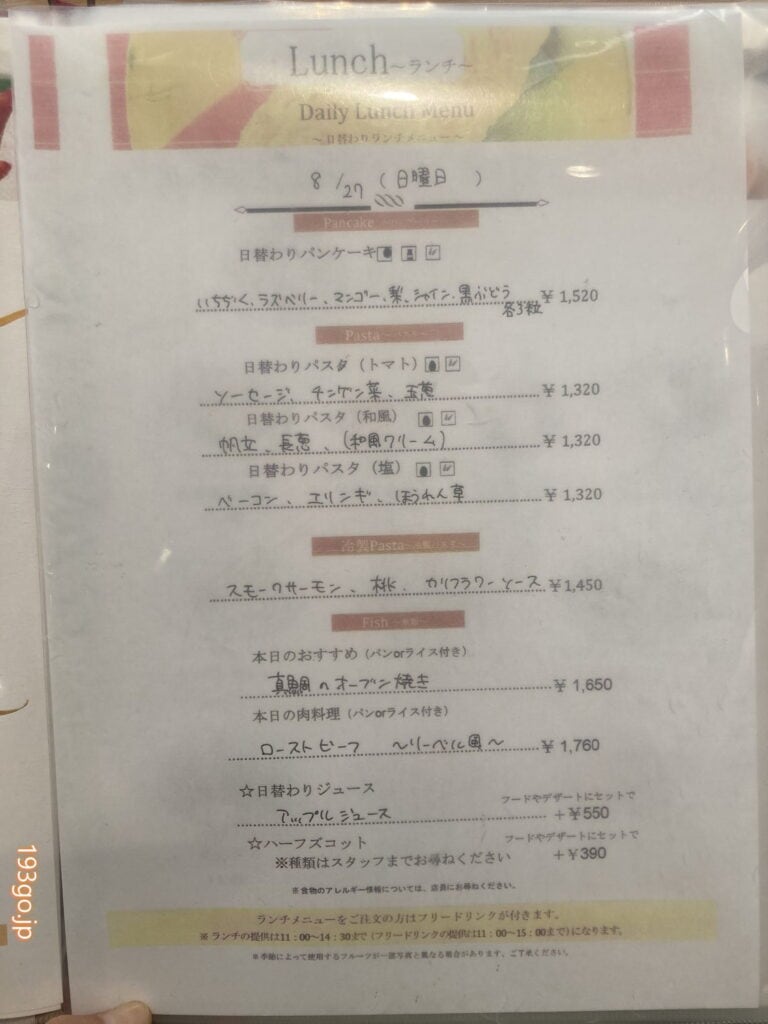 Lunch～ランチ～
Daily Lunch Menu
～日替わりランチメニュー～
8/27（日曜日）
Pancake
日替わりパンケーキ
いちぢく、ラズベリー、マンゴー、梨、シャイン、黒ぶどう 各3粒 ¥ 1,520
Pasta
日替わりパスタ（トマト）
ソーセージ、チンゲン菜、玉葱 ¥ 1,320
日替わりパスタ（和風）
帆立、長葱、（和風クリーム） ¥ 1,320
日替わりパスタ（塩）
ベーコン、エリンギ、ほうれん草 ¥ 1,320
冷製Pasta
スモークサーモン、桃、カリフラワーソース ¥1,450
Fish
本日のおすすめ（パンorライス付き）
真鯛のオーブン焼き ¥ 1,650
本日の肉料理（パンorライス付き）
ローストビーフ ～リーベル風～ ¥ 1,760
☆日替わりジュース フードやデザートにセットで
アップルジュース ＋¥550
☆ハーフズコット フードやデザートにセットで
※種類はスタッフまでお尋ねください ＋¥390
※食物のアレルギー情報については、店員にお尋ねください。
ランチメニューをご注文の方はフリードリンクが付きます。
※ ランチの提供は11：00～14：30まで（フリードリンクの提供は11：00～15：00まで）になります。
※季節によって使用するフルーツが一部写真と異なる場合があります、ご了承ください。
193go.jp